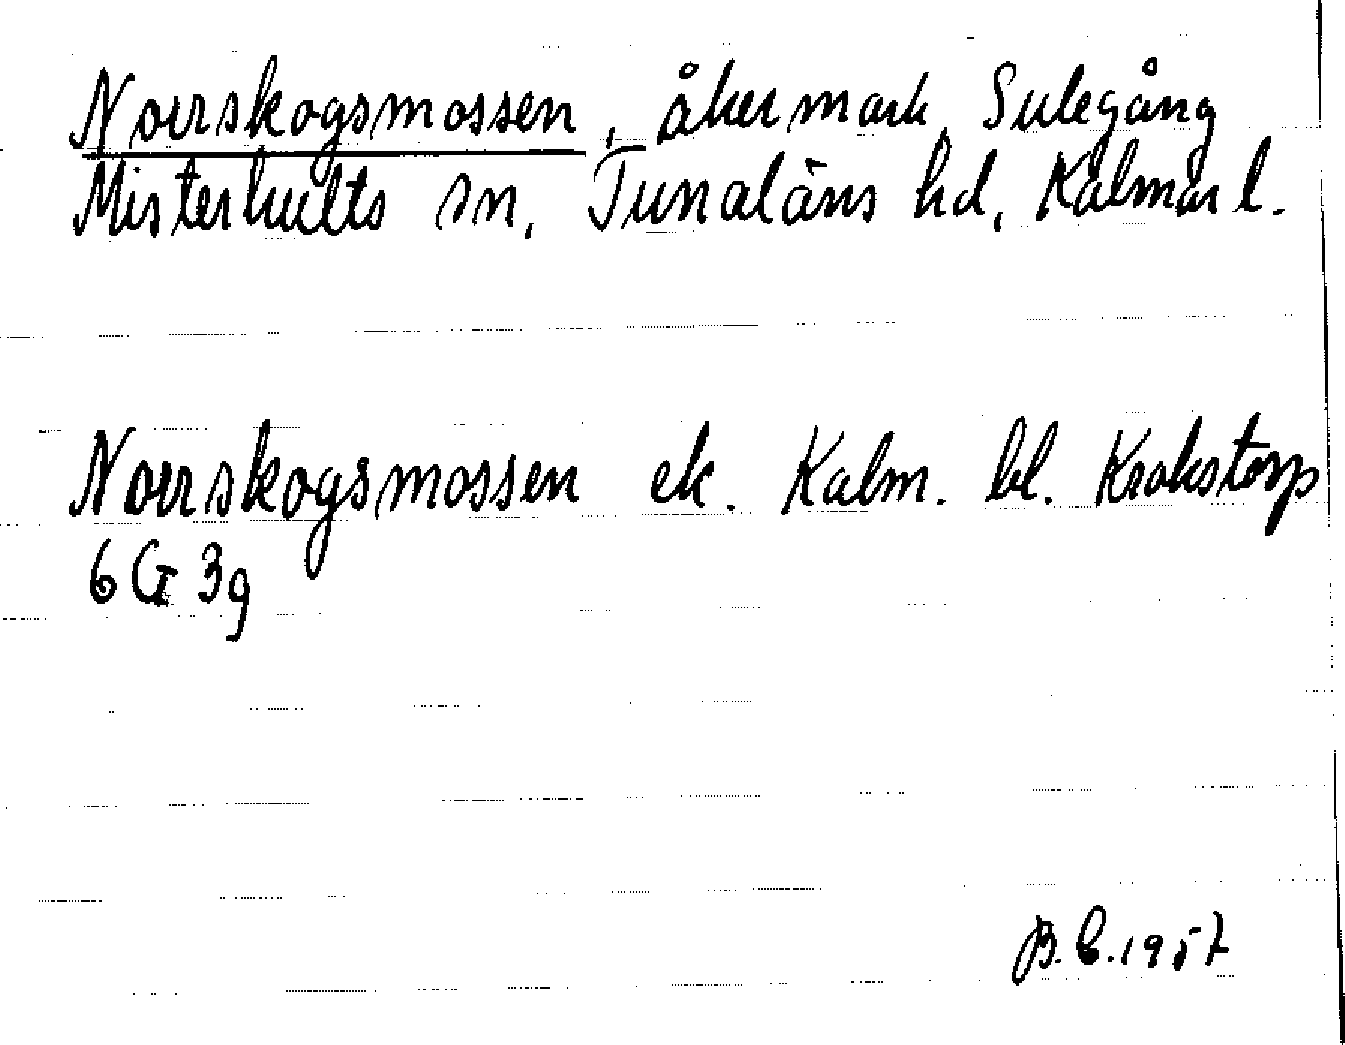 Norrskogsmossen, åkermark, Sulegång
Misterhults sn, Tunaläns hd, Kalmar l.
Norrskogsmossen ek. Kalm. bl. Krokstorp
6G 3g
B.E. 1957